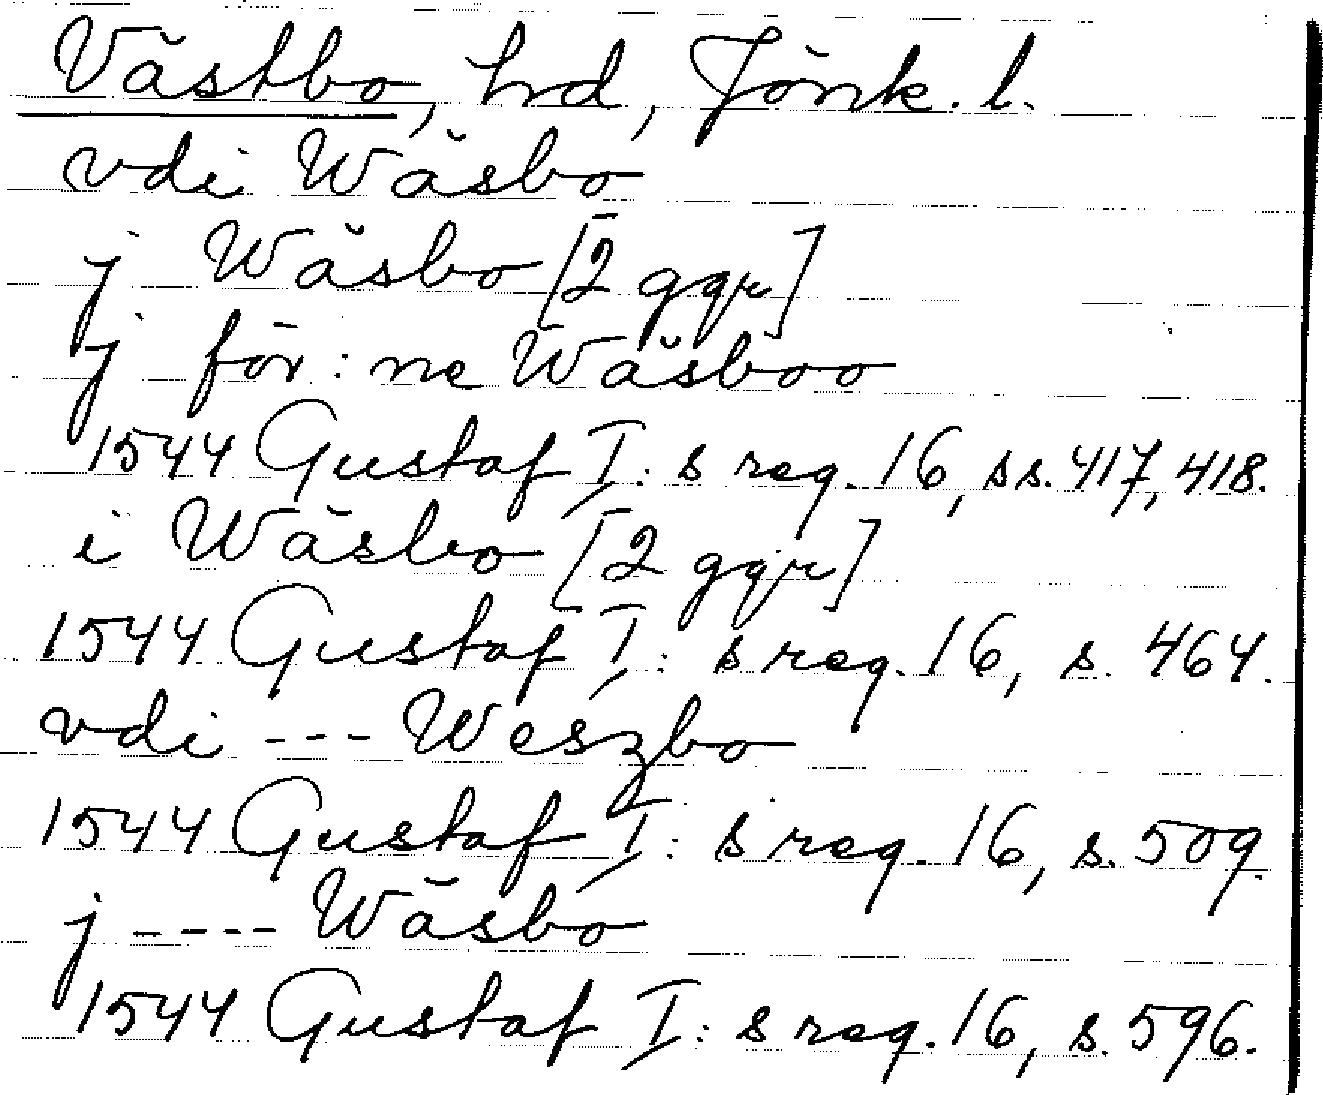 Västbo, hd, Jönk. l.
vdi Wäsbo
j Wäsbo [2 ggr]
j för:ne Wäsboo
1544 Gustaf I:s reg. 16, ss. 417, 418.
i Wäsbo [2 ggr]
1544 Gustaf I:s reg. 16, s. 464.
vdi --- Weszbo
1544 Gustaf I:s reg. 16, s. 509.
j ---- Wäsbo
1544 Gustaf I:s reg. 16, s. 596.